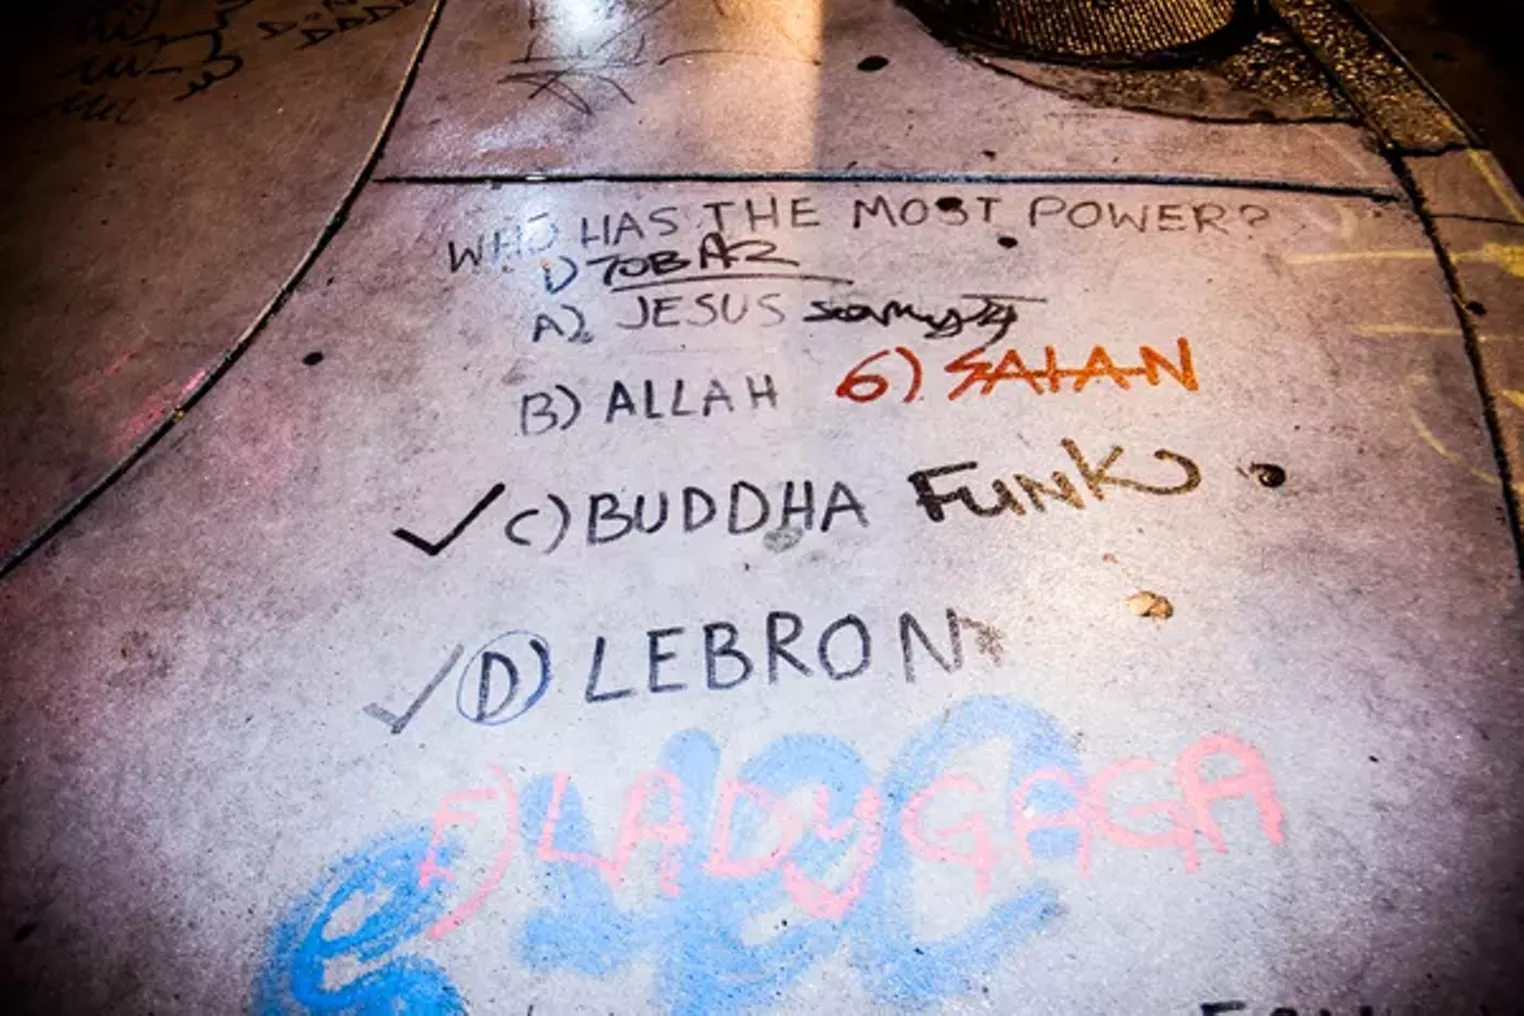 WHO HAS THE MOST POWER?
D TOBAR
A) JESUS
B) ALLAH 6) SATAN
C) BUDDHA FUNK
D) LEBRON
E) LADY GAGA